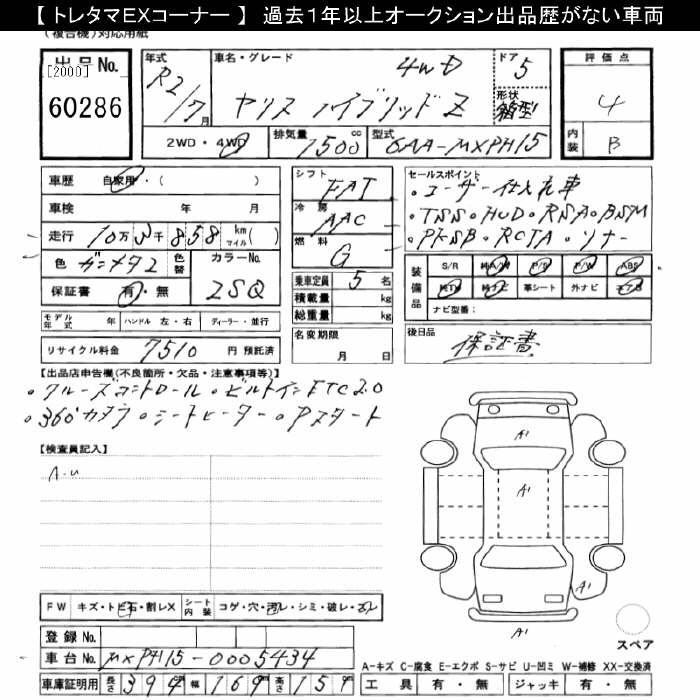 【 トレタマEXコーナー 】 過去1年以上オークション出品歴がない車両
(複合機)対応用紙
出品No.
[2000]
60286
年式
R2/7月
車名・グレード
4WD
ヤリス ハイブリッドZ
ドア 5
形状
箱型
評価点
4
内装
B
2WD・4WD
排気量 1500 cc
型式 6AA-MXPH15
車歴 自家用・( )
車検 年 月
走行 10万3千858 km マイル( )
色 ガンメタ2 色替
カラーNo.
保証書 有・無
2SQ
シフト FAT
冷房 AAC
燃料 G
乗車定員 5 名
積載量 kg
総重量 kg
セールスポイント
・ユーザー仕入れ車
・TSS・HUD・RSA・BSM
・PKSB・RCTA・ソナー
装備品
S/R 純A/W P/S P/W ABS
純TV 純ナビ 革シート 外ナビ エアB
ナビ型番:
モデル年式 年 ハンドル 左・右 ディーラー・並行
リサイクル料金 7510 円 預託済
名変期限
月 日
後日品
保証書
【出品店申告機(不良箇所・欠品・注意事項等)】
・クルーズコントロール・ビルトインETC2.0
・360°カメラ・シートヒーター・Pスタート
【検査員記入】
A・U
A1
A1
A1
A1
A1
FW キズ・トビ石・割レX シート内装 コゲ・穴・汚レ・シミ・破レ・スレ
登録No.
車台No. MXPH15-0005434
車庫証明用 長さ 394cm 幅 169cm 高さ 151cm
スペア
A-キズ C-腐食 E-エクボ S-サビ U-凹ミ W-補修 XX-交換済
工具 有・無 ジャッキ 有・無